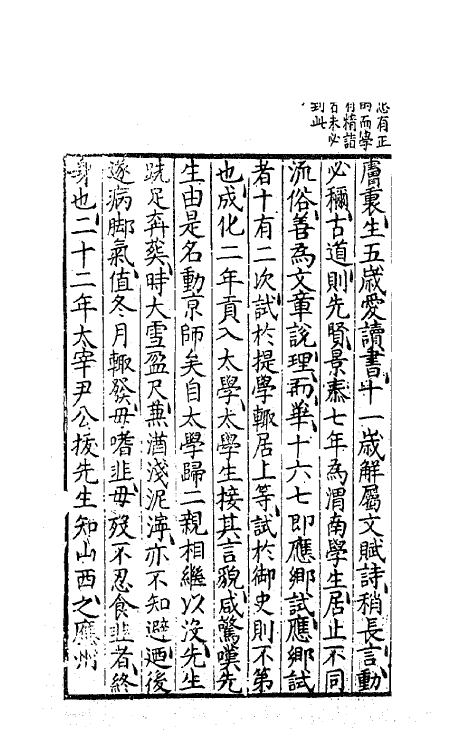 忠有正
的而學
有精詣
古未必
到此
膚裏生五歲愛讀書十一歲解屬文賦詩稍長言動
必稱古道則先賢景泰七年爲渭南學生居止不同
流俗善爲文章說理而華十六七即應鄉試應鄉試
者十有二次試於提學輙居上等試於御史則不第
也成化二年貢入太學太學生接其言貌咸驚嘆先
生由是名動京師矣自太學歸二親相繼以没先生
跣足奔葬時大雪盈尺蕪酒淺泥濘亦不知避迺後
遂病脚氣值冬月輙發母嗜韭母歿不忍食韭者終
身也二十二年太宰尹公拔先生知山西之應州